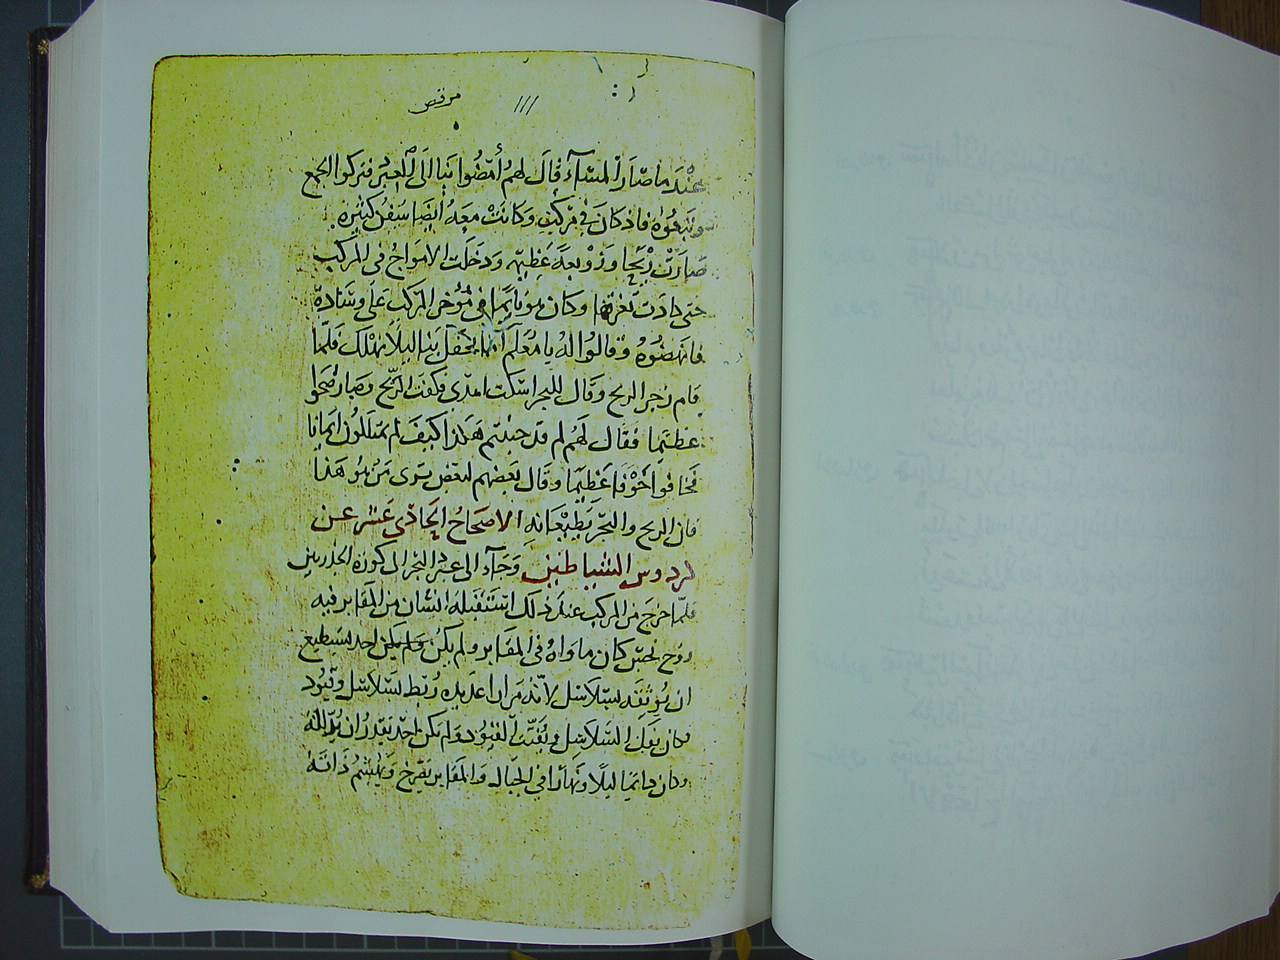 مرقص
عِنْدَ ما صَارَ الْمسَآء قالَ لهُم أمضُوا بنا الَى العِبْرُ فتركوا الجمع
وتبعُوهُ فاذ كانَ فى مركبٌ وكانَتْ معَهُ ايضًا سُفنُ كثيره
صَارَتْ رْيحًا وزوْبعهً عَظيمه ودَخلَت الامواجُ فى المركب
حتى كادَت تغرقها وكان هو نايمًا فى مُؤخر المركب على وسَادةٍ
فانهضُوهُ وقالوا لهُ يا مُعلم أمَا تحفل بنا ليلًا نهلك فلمّا
قام زجر الريح وقال للبحر اسْكت اهدى فكفتْ الرّيح وصار صَحوا
عظيما فقال لهُم لم قد جبنتم هَكذا كيفَ لم تمتلكون ايمانا
فخافوا خَوْفا عَظيمًا وقَال بَعضهم لبعَض ترى مَنْ هُو هَذا
فان الريح والبحَر يَطيْعَانهِ الاصحَاحُ الحَادى عَشر عن
كردوس الشياطين وَجَآء الى عبر البحر الى كورة الجدريين
فلمّا خرجَ من المركب عند ذلك اسْتقبلهُ انسَان من المقابر فيه
رُوح نجسٌ كان ماوَاهُ فى المقابر ولم يكنُ ولم يكن احد يستطيع
ان يُوثقه بسَلاسل لانّهُ مَرارا عديده رُبط بسَلاسل وقيُود
فكان يقطع السَّلاسَل ويُفَتت القيُود ولم يكن احدٌ يقدر ان يُذللهُ
وكان دائما ليلًا ونهَارًا فى الجبال والمقابر يَصْرخ ويهشمُ ذَاتهُ